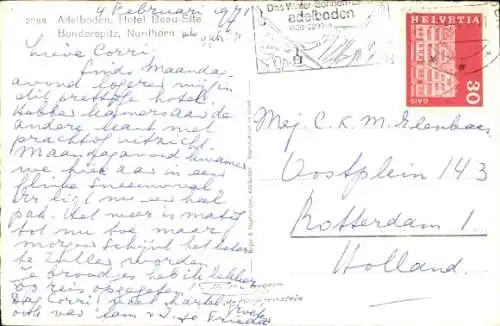 4 Februari 1971
2088 Adelboden, Hotel Beau-Site
Bonderspitz, Nünihorn
Lieve Corri,
Sinds Maandag-
avond logeren wij in
dit prettige hotel.
Hebben kamers aan de
andere kant met
prachtig uitzicht.
Maandagavond kwamen
we hier aan in een
flinke sneeuwval
er ligt nu een heel
pak. Het weer is matig
tot nu toe maar
morgen schijnt het beter
te zullen worden
Je broodjes heb ik lekker
op reis opgegeten
Dag Corri, veel hartel. groeten
ook van Tom v.d. je Frieda
Das Winter-Sonnen
adelboden
HELVETIA
30
GAIS
Mej. C. K. M.
Oostplein 143
Rotterdam 1
Holland